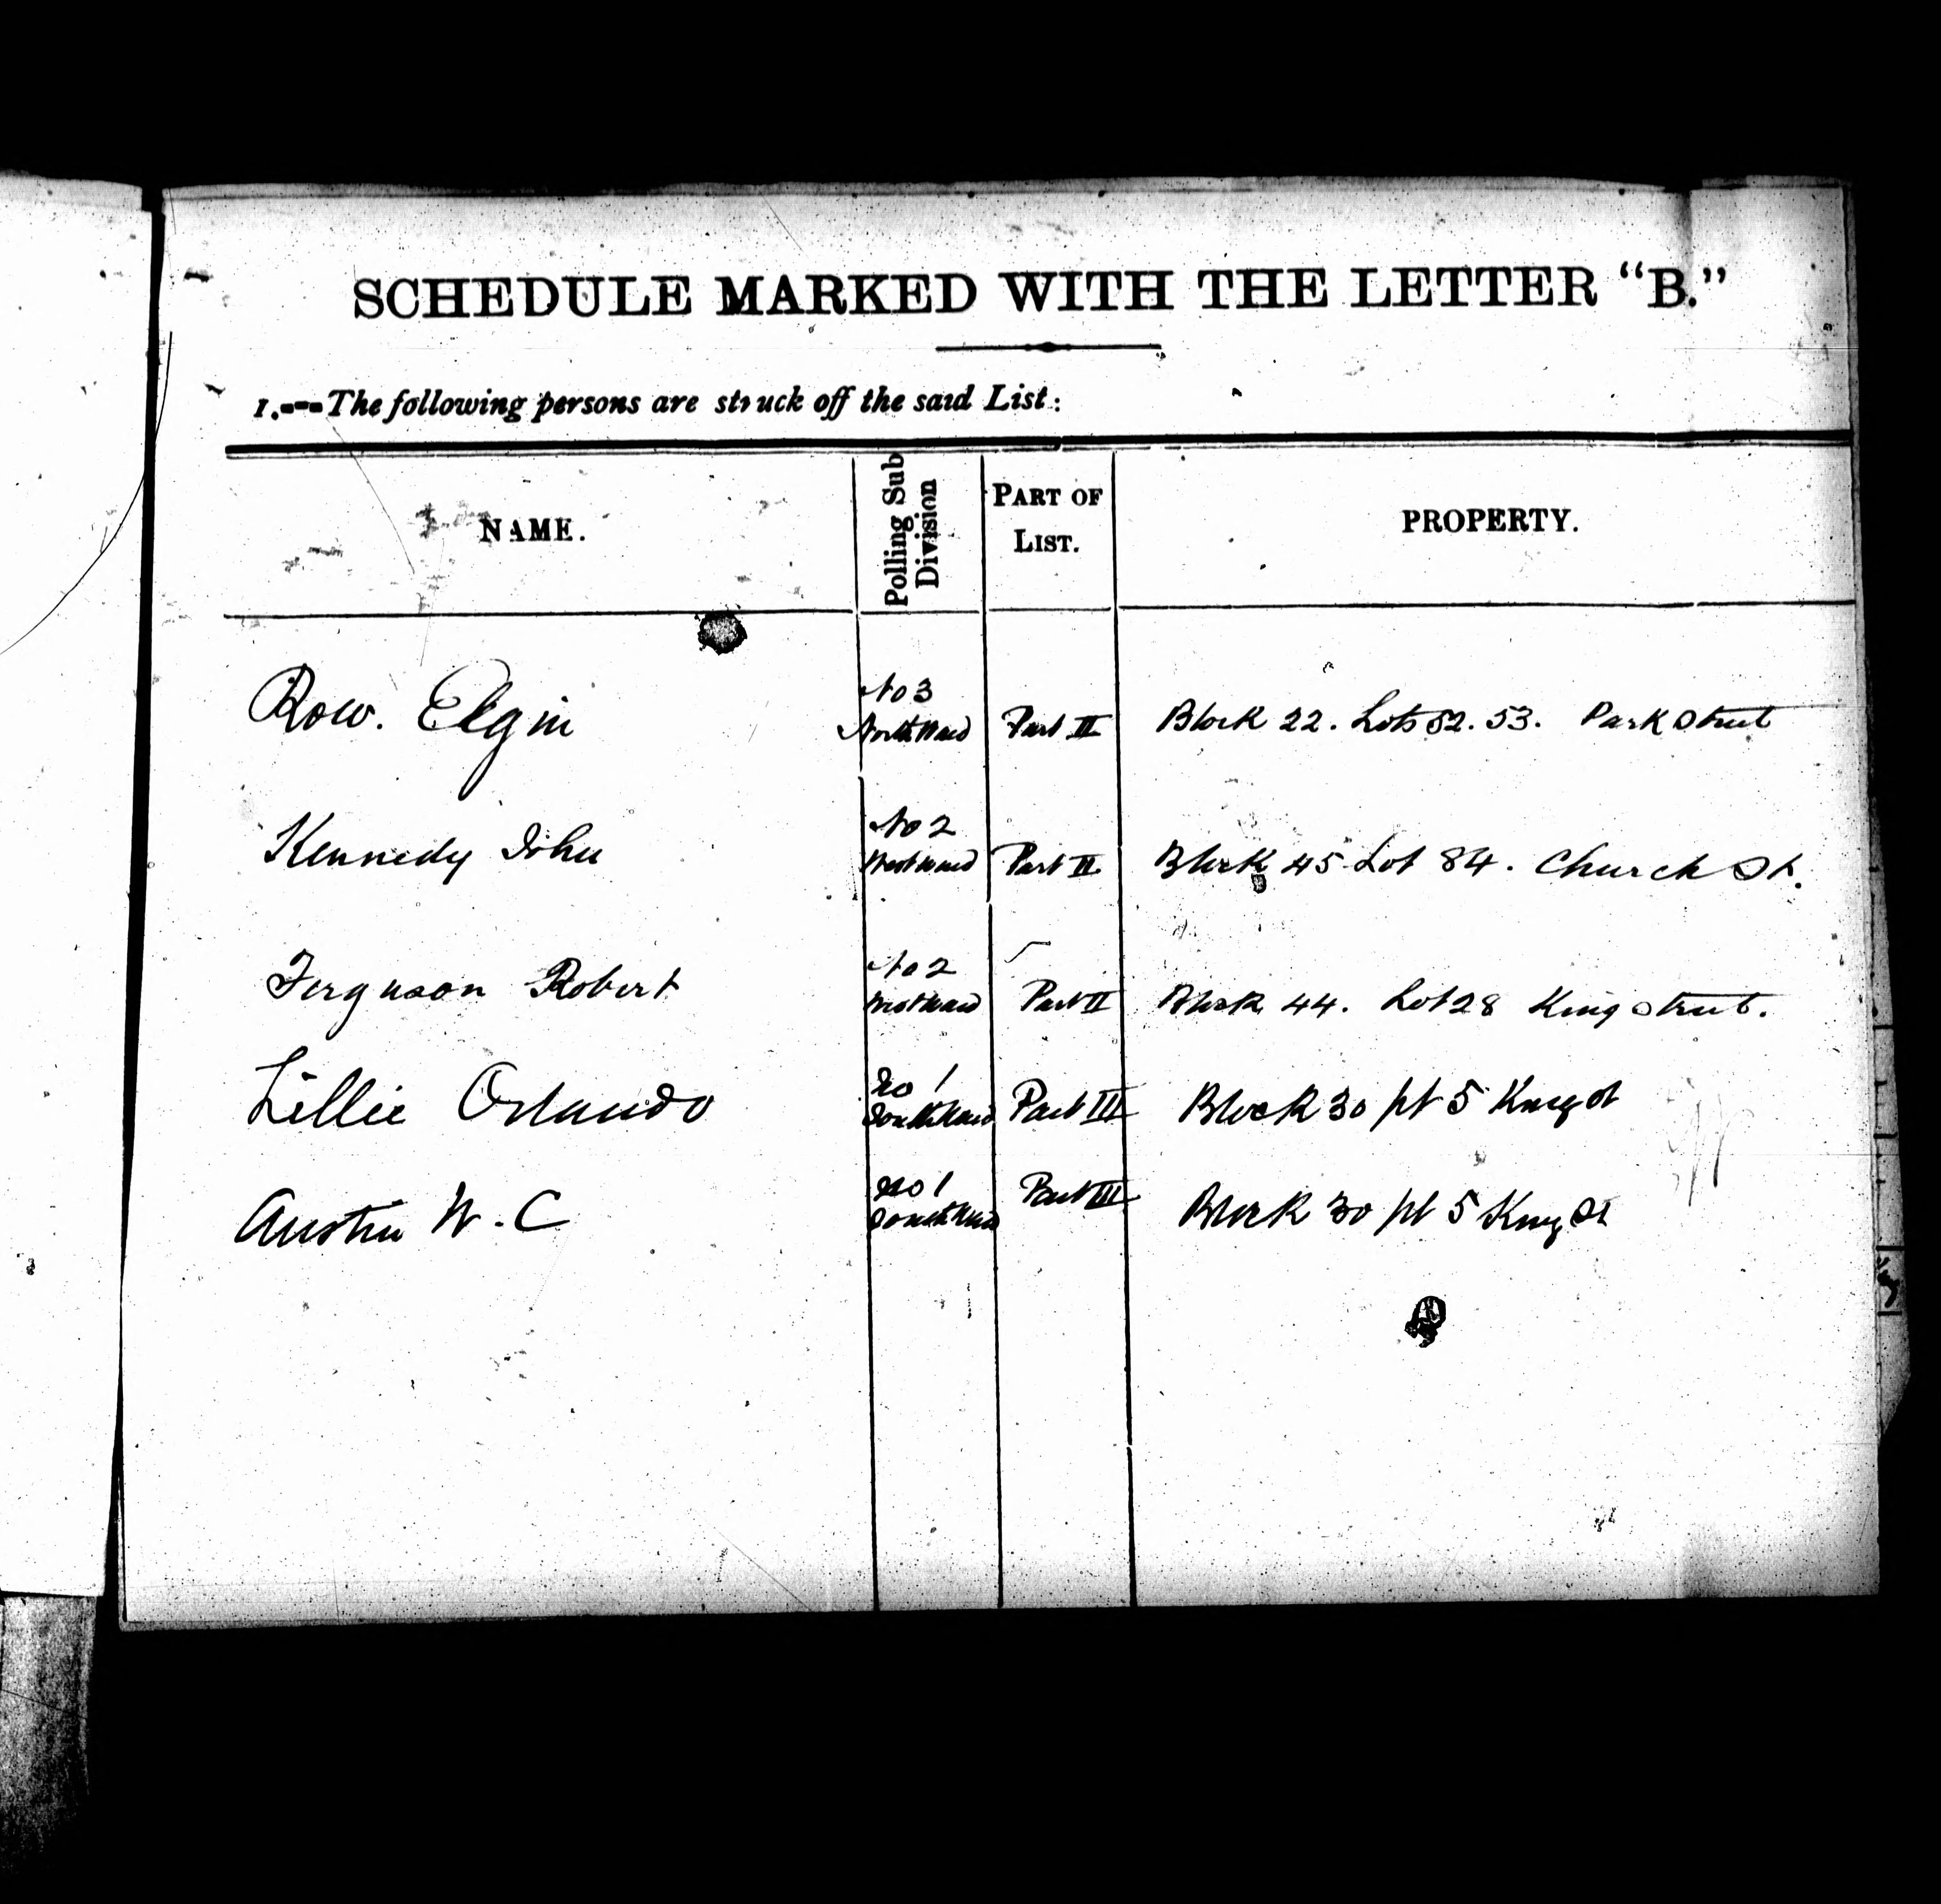 SCHEDULE MARKED WITH THE LETTER "B."
1.---The following persons are struck off the said List:
NAME. Polling Sub Division PART OF LIST. PROPERTY.
Row. Elgin No 3 North Ward Part II Block 22. Lots 52. 53. Park Street
Kennedy John No 2 West Ward Part II Block 45 Lot 84. Church St.
Ferguson Robert No 2 West Ward Part II Block 44. Lot 28 King Street.
Lillie Orlando No 1 South Ward Part III Block 30 pt 5 King St
Austin W. C No 1 South Ward Part III Block 30 pt 5 King St